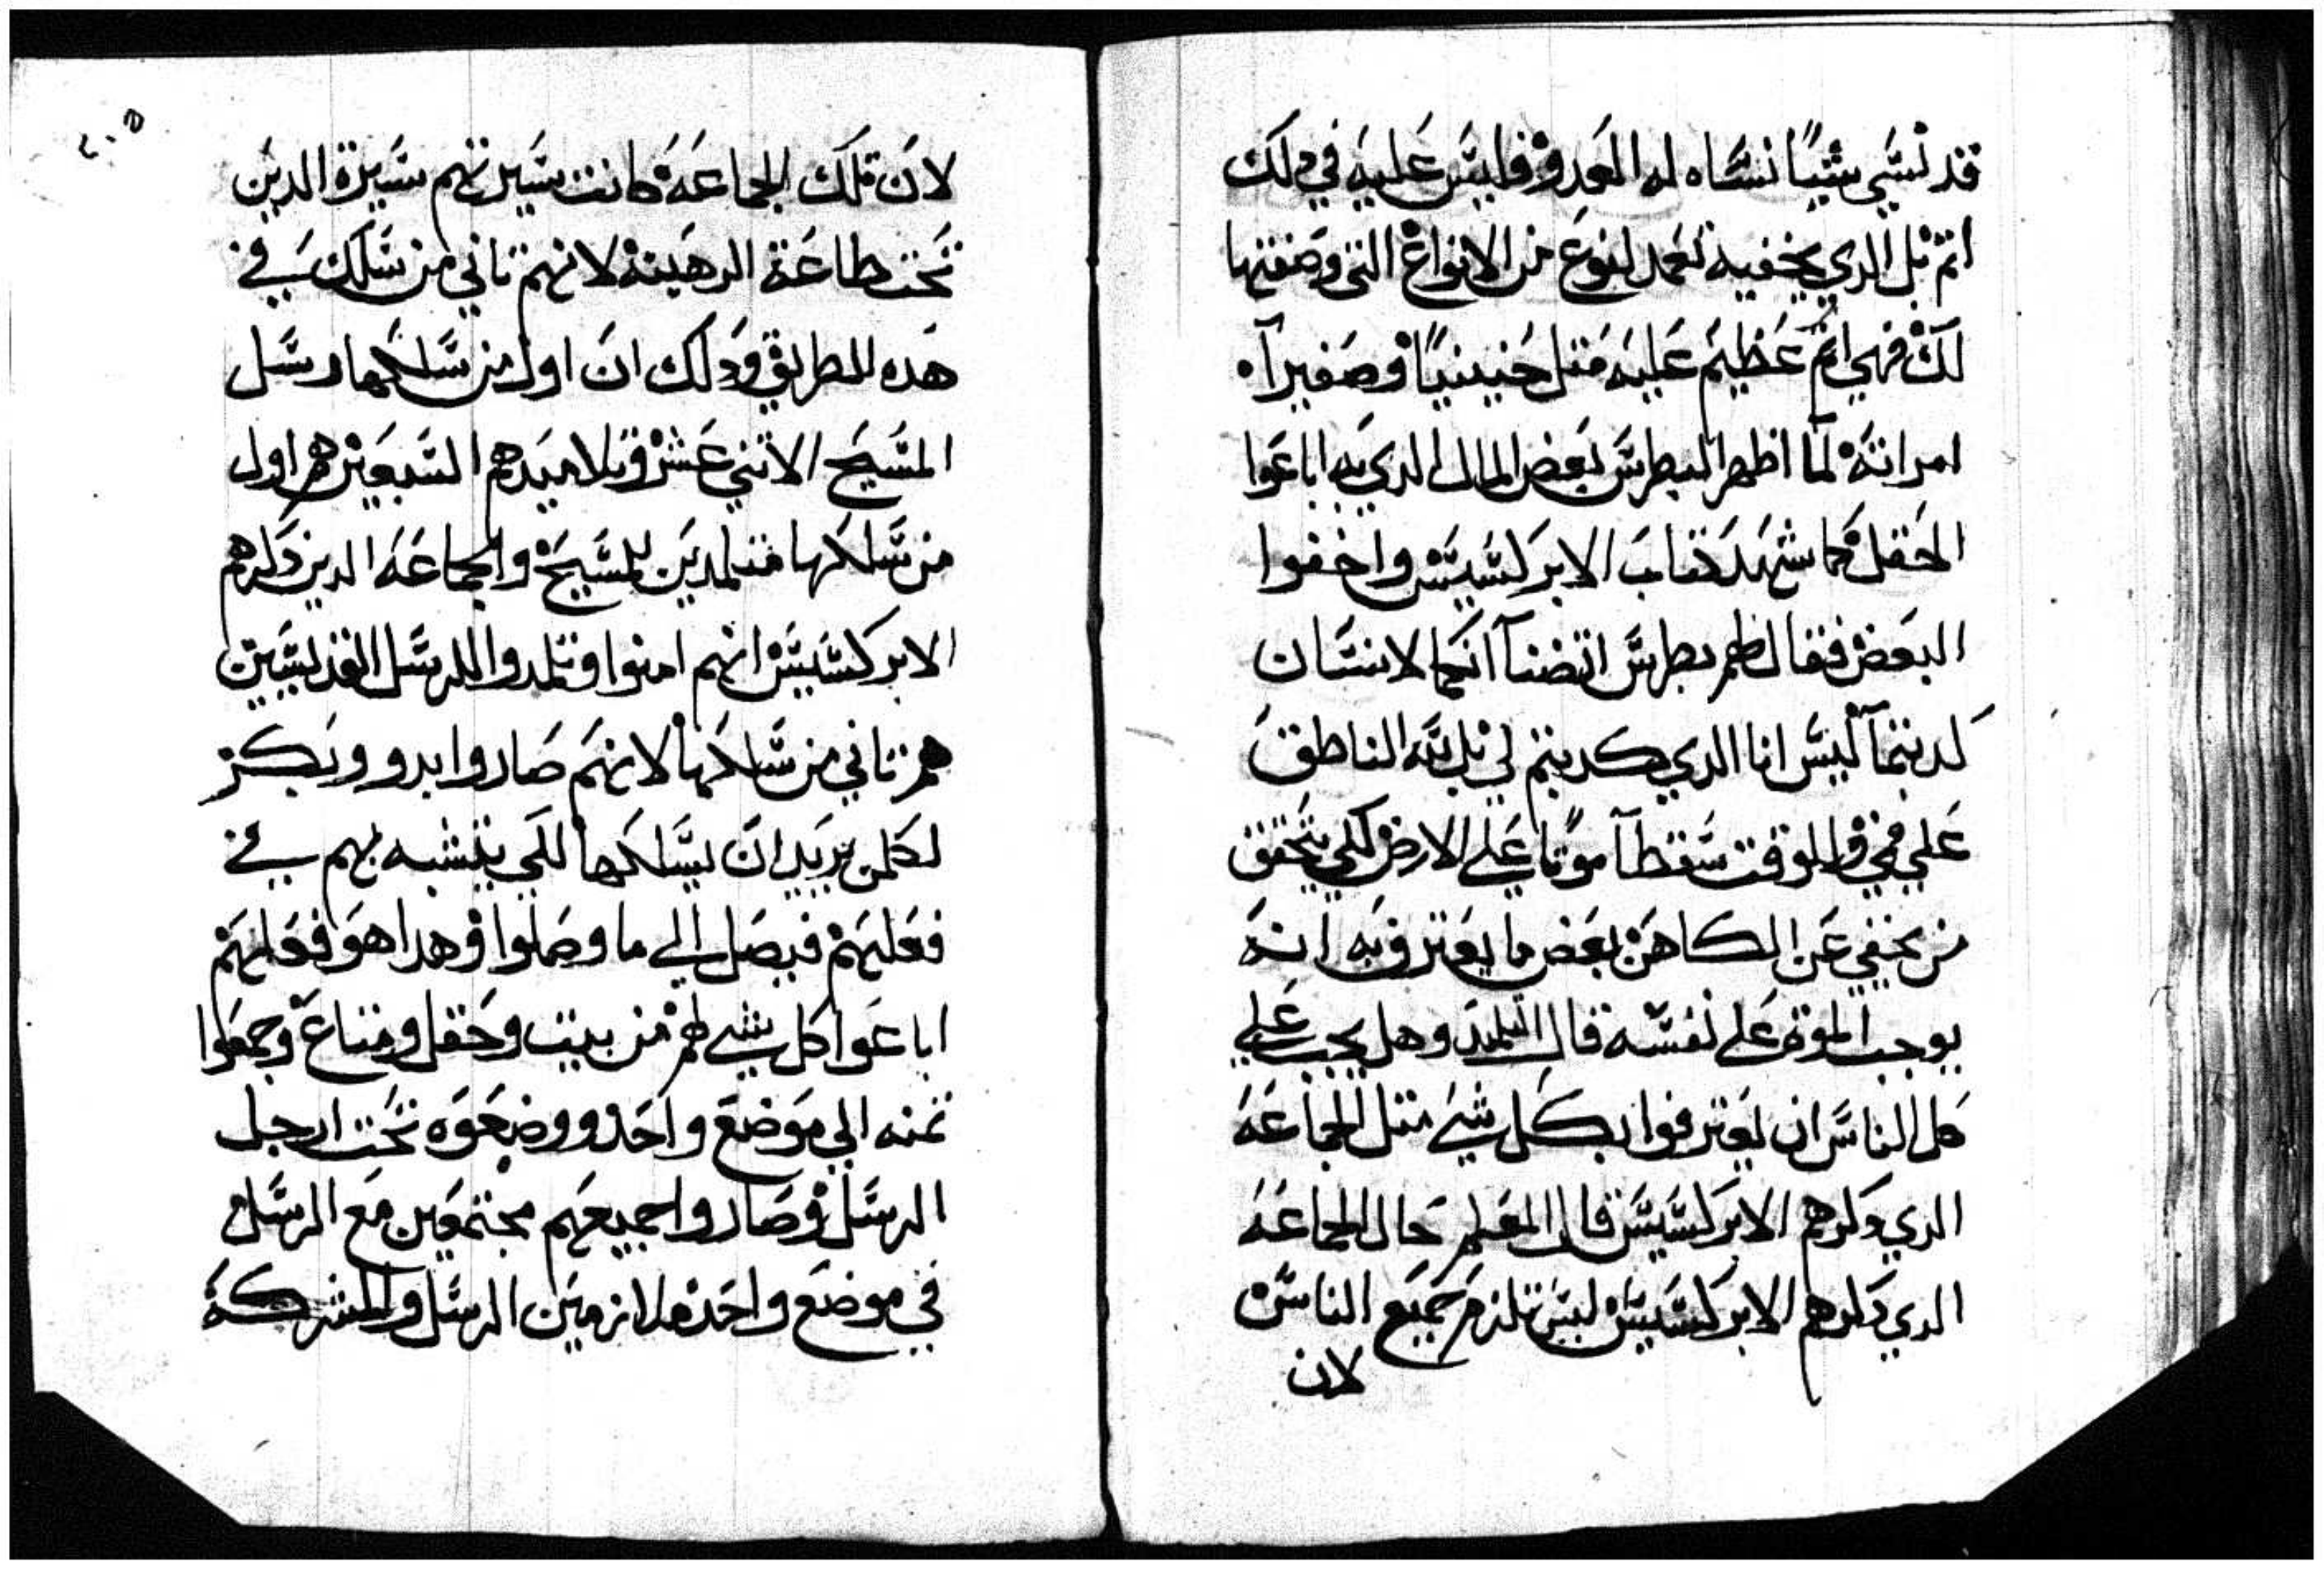 قد نسي شيًا نساه له العدو فليس عليه في دلك
اتم بل الدي يخفيه تعمد لنوع من الانواع التى وصفتها
لك فهي اتم عظيم عليه متل حنينيا وصفيرا
امراته لما اظهرا لبطرس بعض المال الدي به اباعوا
الحقل كما شهد كتاب الابركسيس واخفوا
البعض فقال لهم بطرس اتضنا انكما لانسان
كدبتما ليس انا الدي كدبتم لي بل لله الناطق
علي فمي وللوقت سقطا موتا علي الارض لكي يتحقق
من يخفي عن الكاهن بعض ما يعترف به انه
يوجب الموت علي نفسه قال التلميد وهل يجب علي
كل الناس ان يعترفوا بكل شي متل الجماعه
الدي دكرهم الابركسيس قال المعلم حال الجماعه
الدي دكرهم الابركسيس ليس تلزم جميع الناس
لان
٢٠٥
لان تلك الجماعه كانت سيرتهم سيرة الدين
تحت طاعة الرهبنه لانهم تاني من سلك في
هده الطريق ودلك ان اول من سلكها رسل
المسيح الاتني عشر وتلاميدهم السبعين هم اول
من سلكها متلمدين للمسيح والجماعه الدين دكرهم
الابركسيس انهم امنوا وتلمدوا للرسل القديسين
هم تاني من سلكها لانهم صاروا بدو وبكر
لكلمن يريد ان يسلكها لكي يتشبه بهم في
فعلهم فيصل الي ما وصلوا وهدا هو فعلهم
اباعوا كل شي لهم من بيت وحقل ومتاع وجمعوا
تمنه الي موضع واحد ووضعوه تحت ارجل
الرسل وصاروا جميعهم مجتمعين مع الرسل
في موضع واحد ملازمين الرسل والشركة